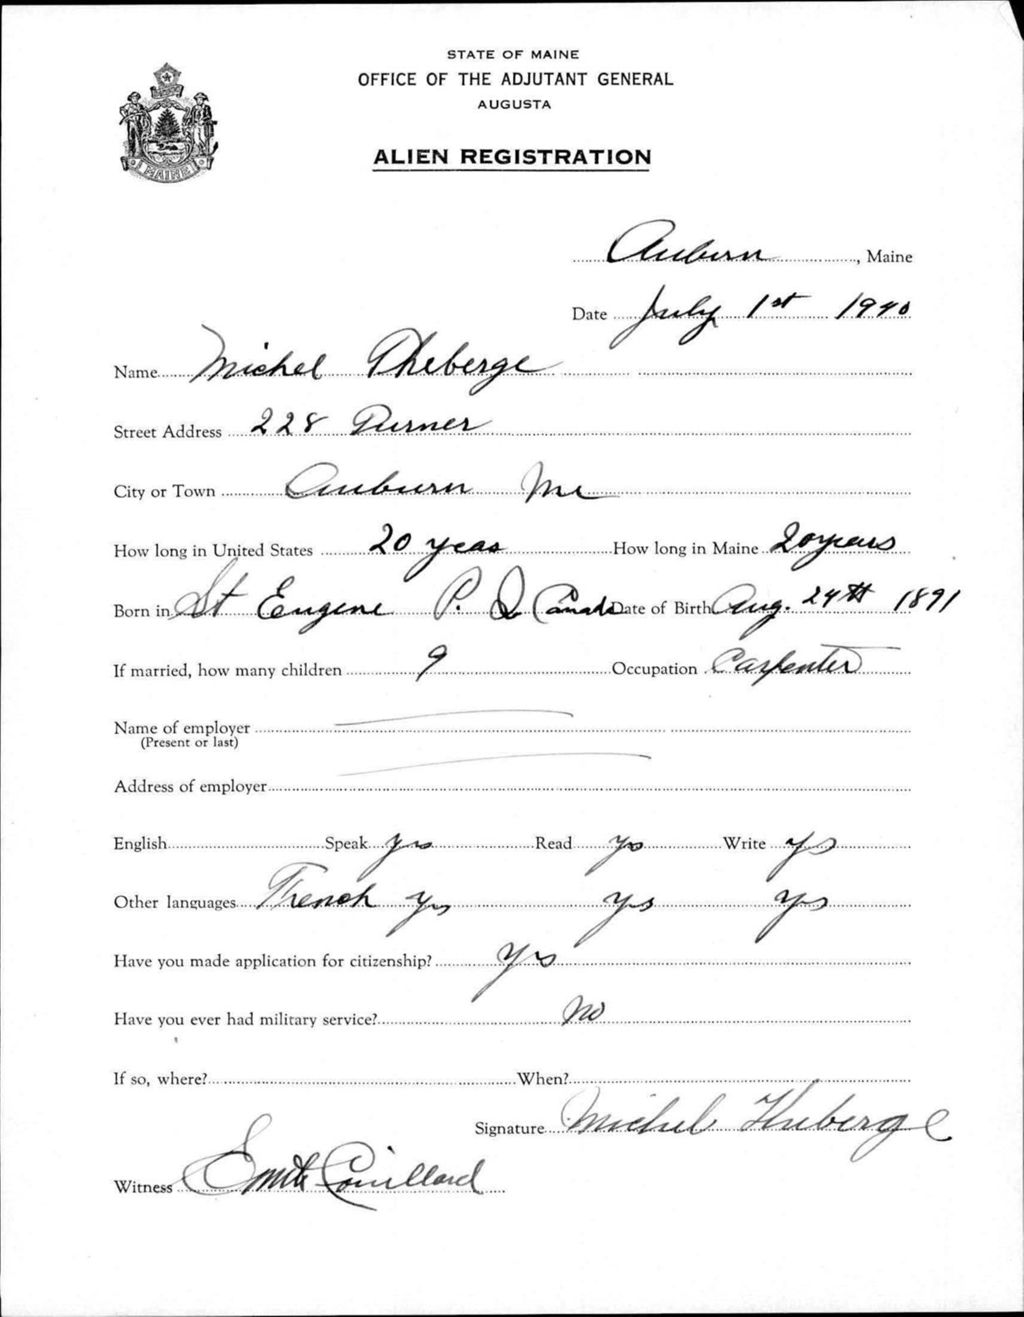 STATE OF MAINE
OFFICE OF THE ADJUTANT GENERAL
AUGUSTA
ALIEN REGISTRATION
MAINE
Auburn, Maine
Date July 1st 1940
Name Michel Theberge
Street Address 228 Turner
City or Town Auburn Me
How long in United States 20 years How long in Maine 20 years
Born in St Eugene P. Q Canada Date of Birth Aug. 24th 1891
If married, how many children 9 Occupation Carpenter
Name of employer
(Present or last)
Address of employer
English Speak yes Read yes Write yes
Other languages French yes yes yes
Have you made application for citizenship? yes
Have you ever had military service? no
If so, where? When?
Signature Michel Theberge
Witness Couillard